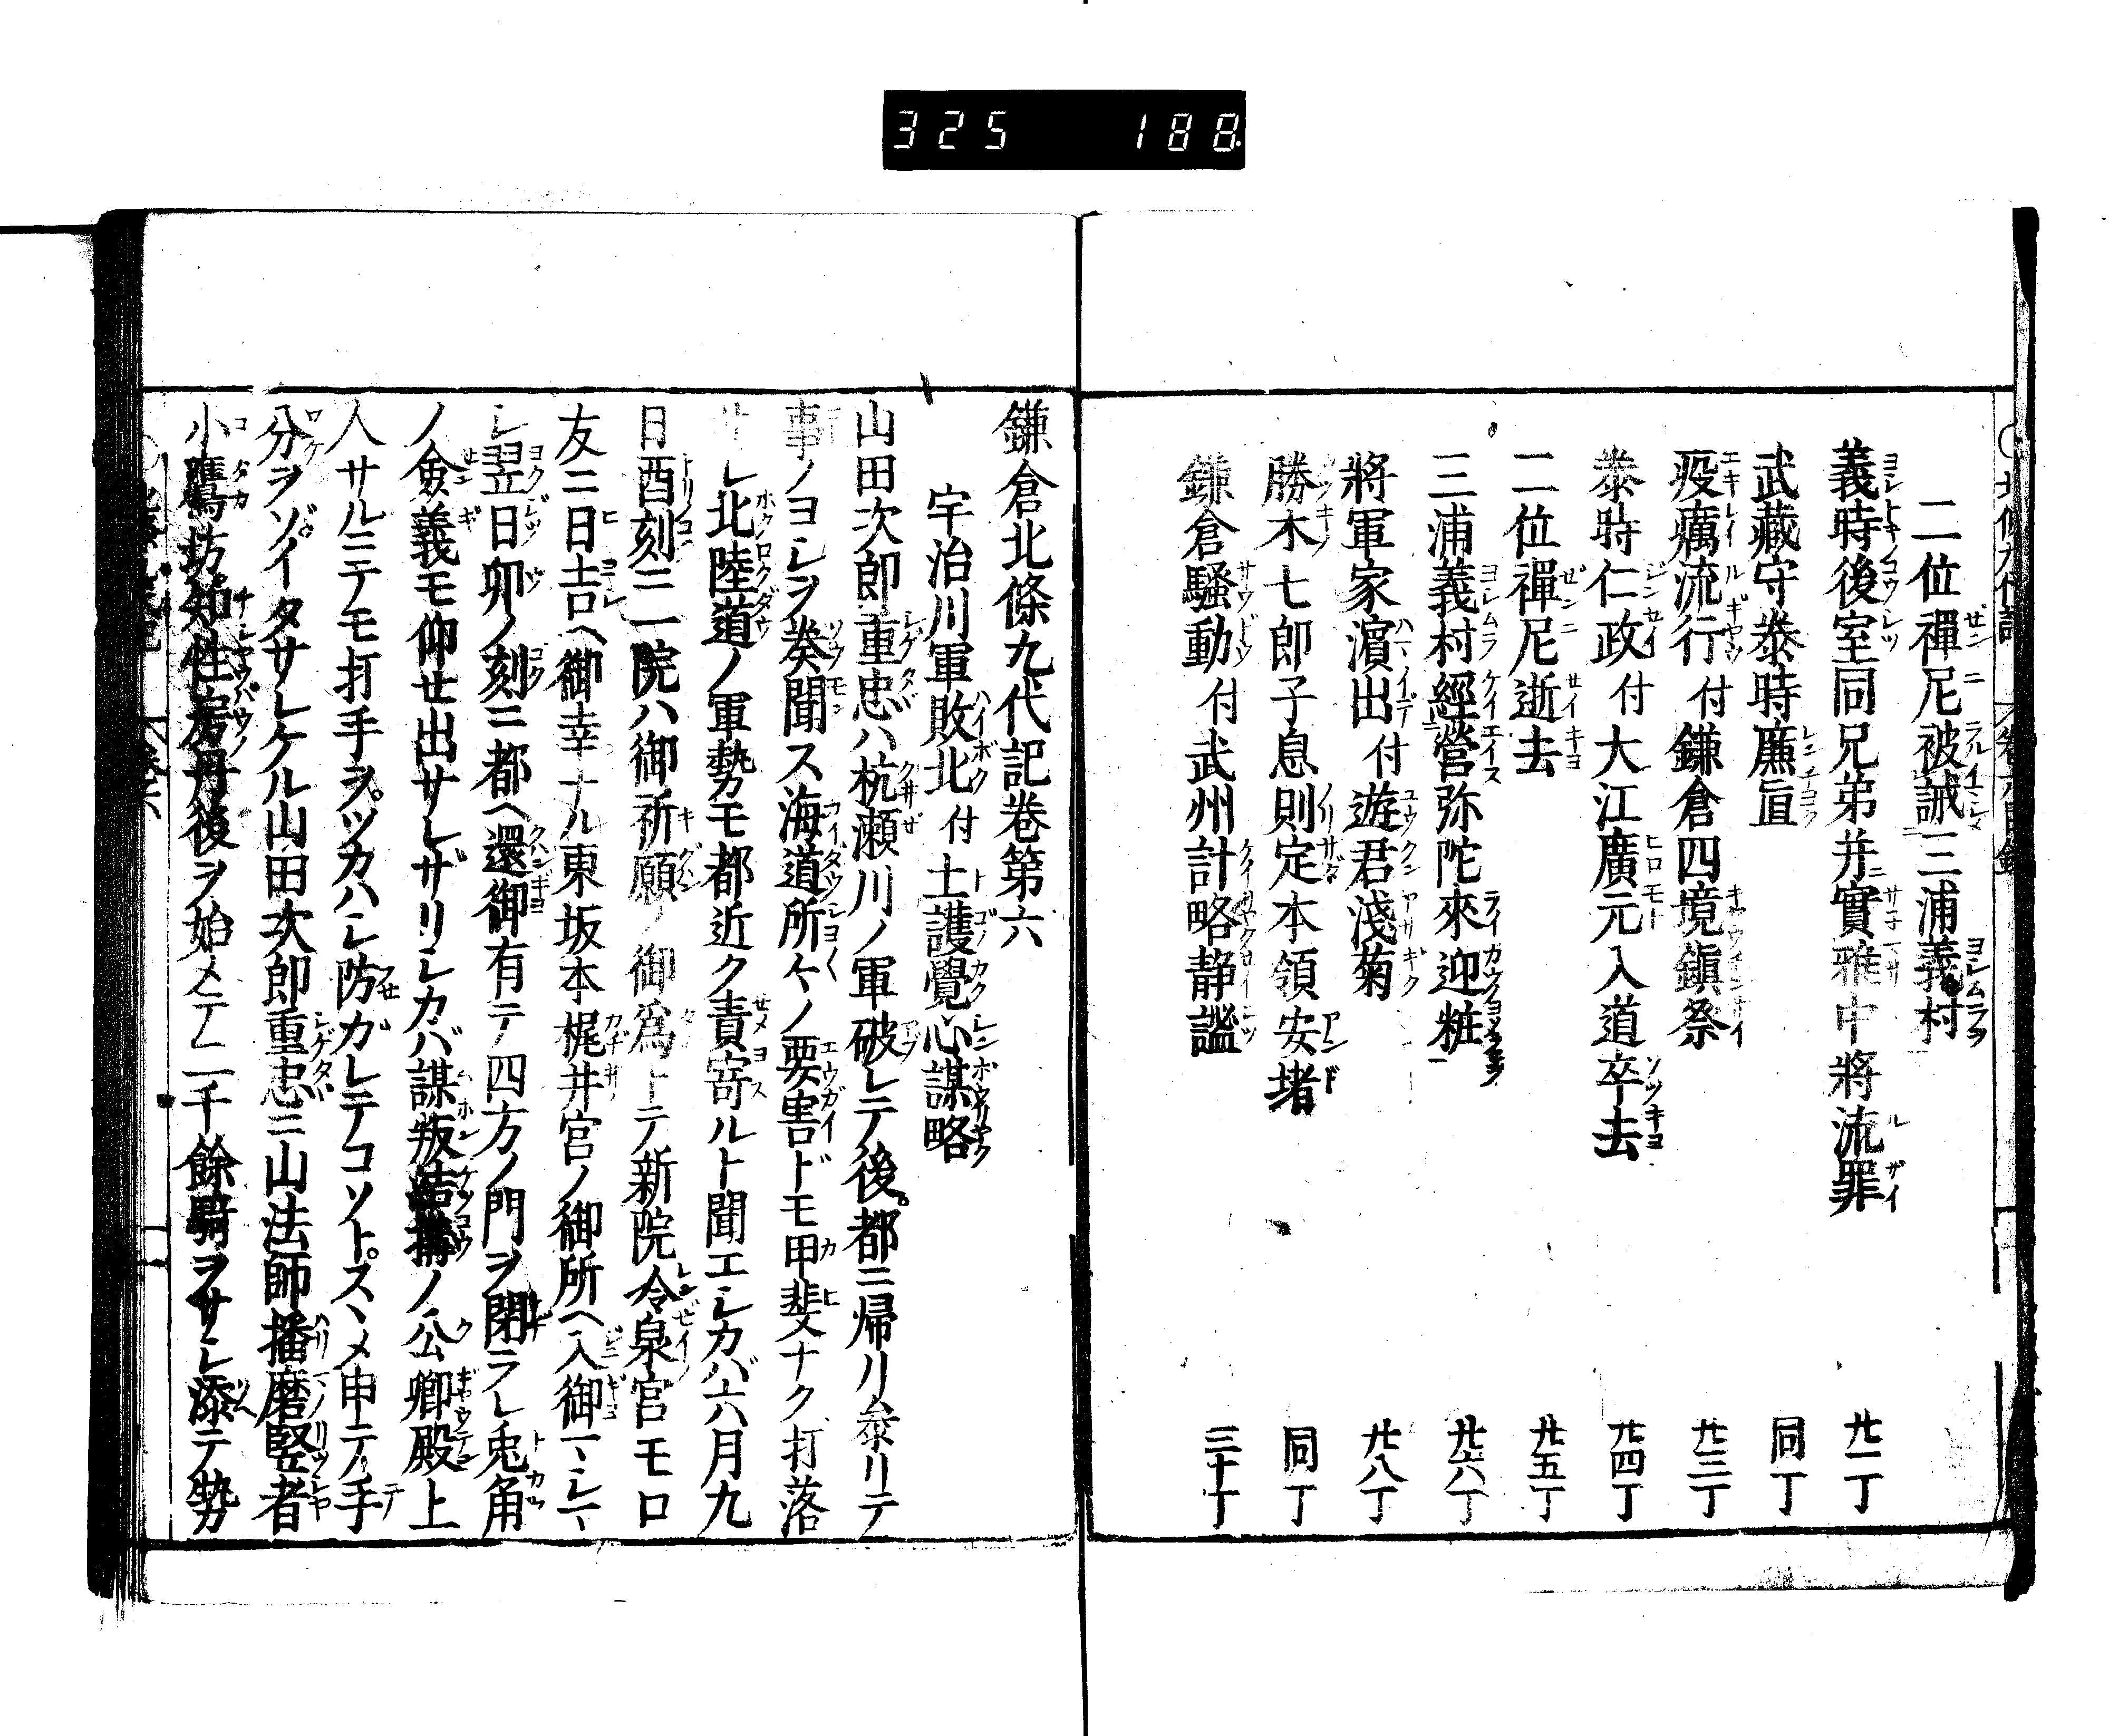 325 188
二位禪尼被誡三浦義村
義時後室同兄弟并實雅中將流罪 廿一丁
武藏守泰時廉直 同丁
疫癘流行付鎌倉四境鎭祭 廿三丁
泰時仁政付大江廣元入道卒去 廿四丁
二位禪尼逝去 廿五丁
三浦義村經營弥陀來迎粧 廿六丁
將軍家濵出付遊君淺菊 廿八丁
勝木七郎子息則定本領安堵 同丁
鎌倉騷動付武州計略静謐 三十丁
鎌倉北條九代記卷第六
宇治川軍敗北付土護覺心謀略
山田次郎重忠ハ杭瀬川ノ軍破レテ後都ニ帰リ参リテ
事ノヨシヲ奏聞ス海道所々ノ要害ドモ甲斐ナク打落
サレ北陸道ノ軍勢モ都近ク責寄ルト聞エシカバ六月九
日酉刻ニ一院ハ御祈願ノ御爲トテ新院令泉宮モロ
友ニ日吉ヘ御幸ナル東坂本梶井宮ノ御所ヘ入御マシマ
シ翌日卯ノ刻ニ都ヘ還御有テ四方ノ門ヲ閉ラレ兎角
ノ僉義モ仰せ出サレザリシカバ謀叛結搆ノ公卿殿上
人サルニテモ打手ヲツカハシ防ガレテコソトスヽメ申テ手
分ヲゾイタサレケル山田次郎重忠ニ山法師播磨竪者
小鷹坊知性房丹後ヲ始メテ二千餘騎ヲサシ添テ勢